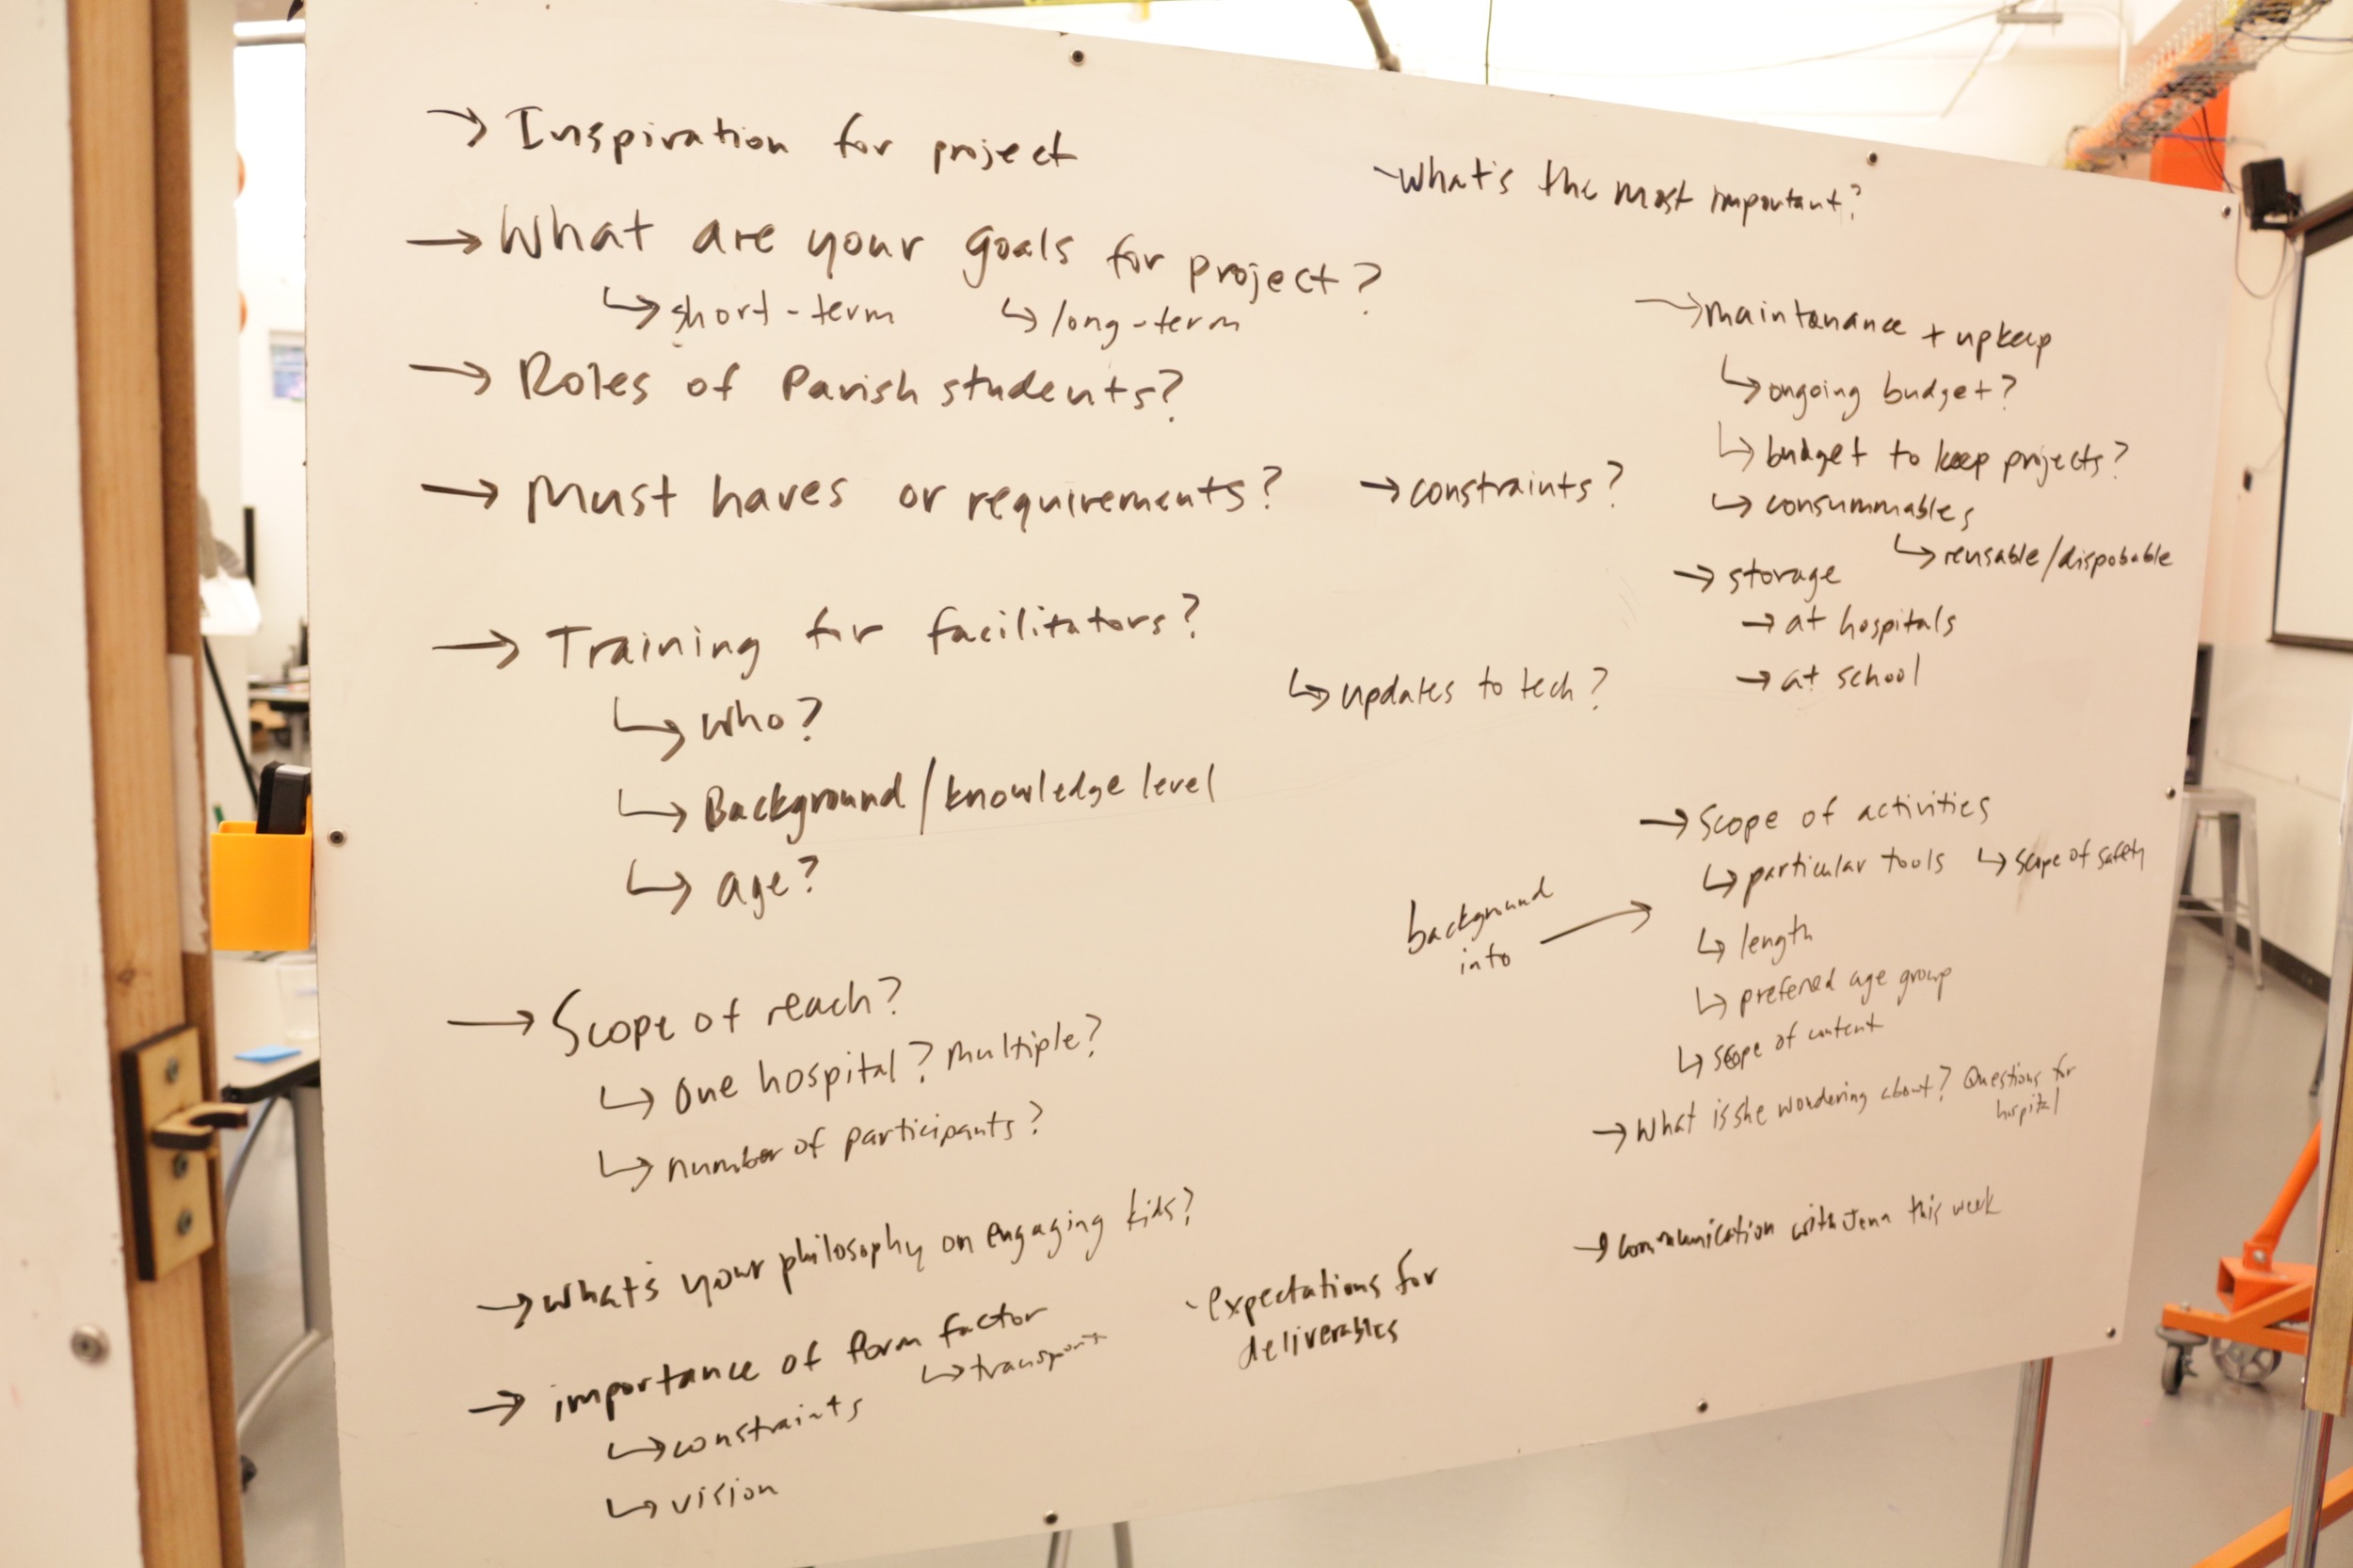 → Inspiration for project
→ What are your goals for project?
↳ short-term ↳ long-term
→ Roles of Parish students?
→ Must haves or requirements? → constraints?
→ Training for facilitators?
↳ who?
↳ Background/knowledge level
↳ age?
↳ updates to tech?
→ Scope of reach?
↳ One hospital? Multiple?
↳ number of participants?
→ What's your philosophy on engaging kids?
→ importance of form factor
↳ transport
↳ constraints
↳ vision
- expectations for
deliverables
- What's the most important?
→ maintanance + upkeep
↳ ongoing budget?
↳ budget to keep projects?
↳ consummables
↳ reusable/dispobable
→ storage
→ at hospitals
→ at school
background
into →
→ Scope of activities
↳ particular tools ↳ scope of safety
↳ length
↳ preferred age group
↳ scope of content
→ What is she wondering about? Questions for
hospital
→ Communication with Jenn this week